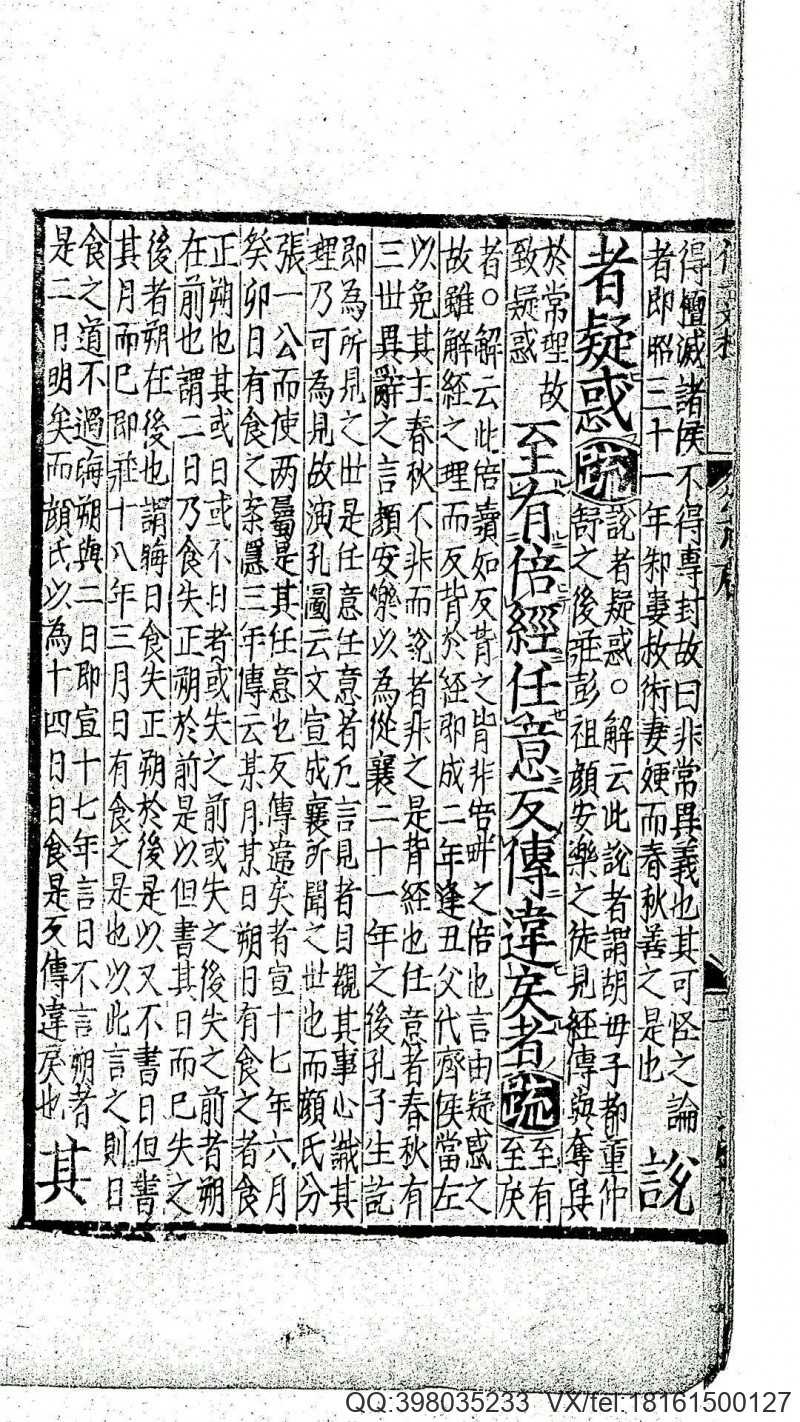 得擅滅諸侯不得專封故曰非常異義也其可怪之論
者即昭三十一年邾婁叔術妻嫂而春秋善之是也
說
者疑惑疏
說者疑惑○解云此說者謂胡毋子都董仲
舒之後莊彭祖顏安樂之徒見經傳與奪異
於常理故
致疑惑
至有倍經任意反傳違戾者疏
至有
至戾
者○解云此倍讀如反背之背非倍畔之倍也言由疑惑之
故雖解經之理而反背於經即成二年逢丑父代齊侯當左
以免其主春秋不非而說者非之是背經也任意者春秋有
三世異辭之言顏安樂以為從襄二十一年之後孔子生訖
即為所見之世是任意任意者凡言見者目覩其事心識其
理乃可為見故演孔圖云文宣成襄所聞之世也而顏氏分
張一公而使两屬是其任意也反傳違戾者宣十七年六月
癸卯日有食之案隱三年傳云某月某日朔日有食之者食
正朔也其或日或不日者或失之前或失之後失之前者朔
在前也謂二日乃食失正朔於前是以但書其日而已失之
後者朔在後也謂晦日食失正朔於後是以又不書日但書
其月而已即莊十八年三月日有食之是也以此言之則日
食之道不過晦朔與二日即宣十七年言日不言朔者
是二日明矣而顏氏以為十四日日食是反傳違戾也
其
QQ:398035233 VX/tel:18161500127